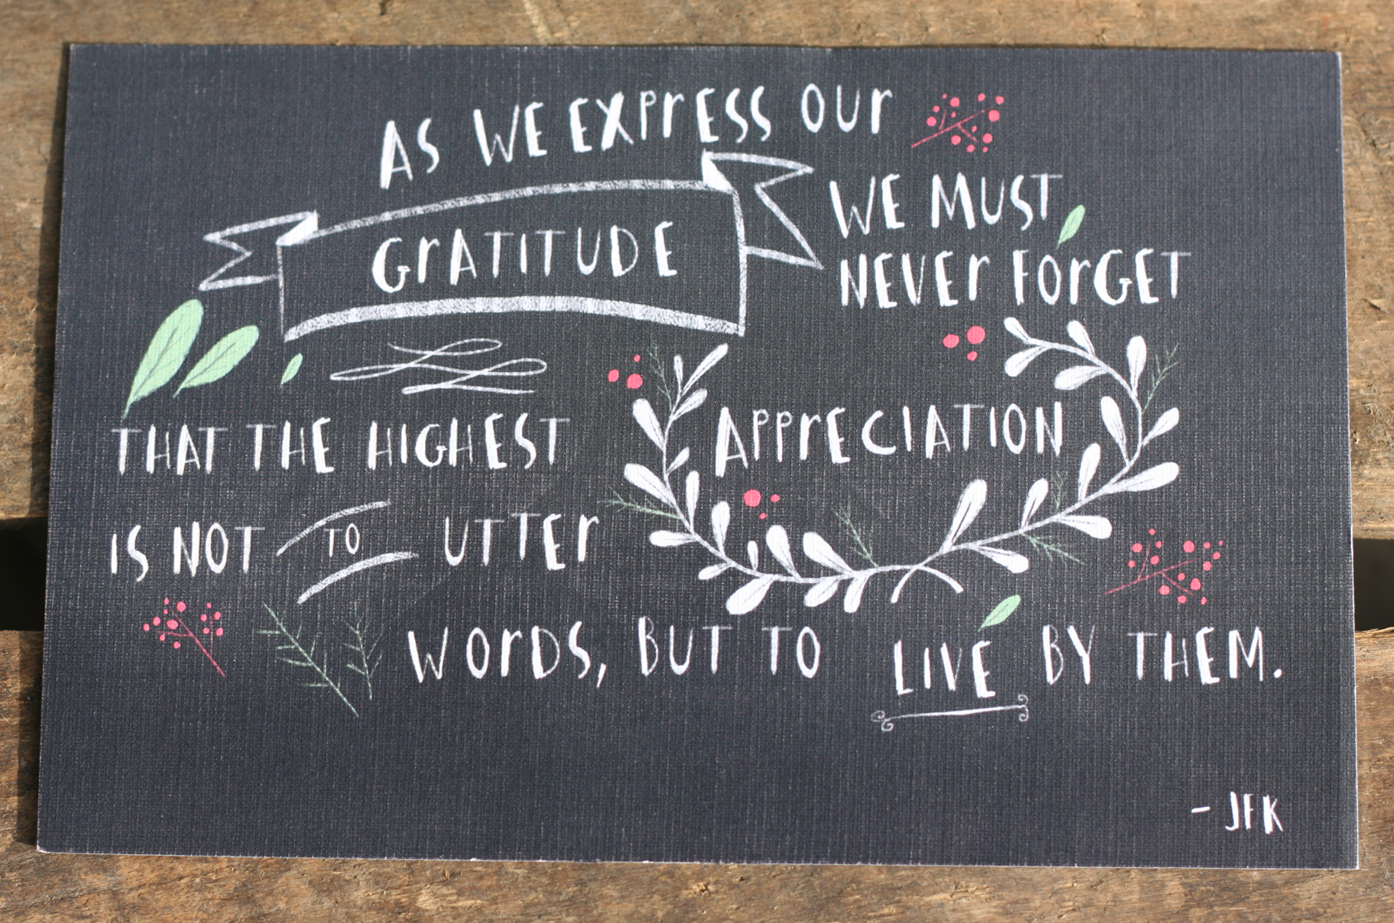 AS WE EXPRESS OUR
GRATITUDE
WE MUST
NEVER FORGET
THAT THE HIGHEST
APPRECIATION
IS NOT TO UTTER
WORDS, BUT TO LIVE BY THEM.
- JFK